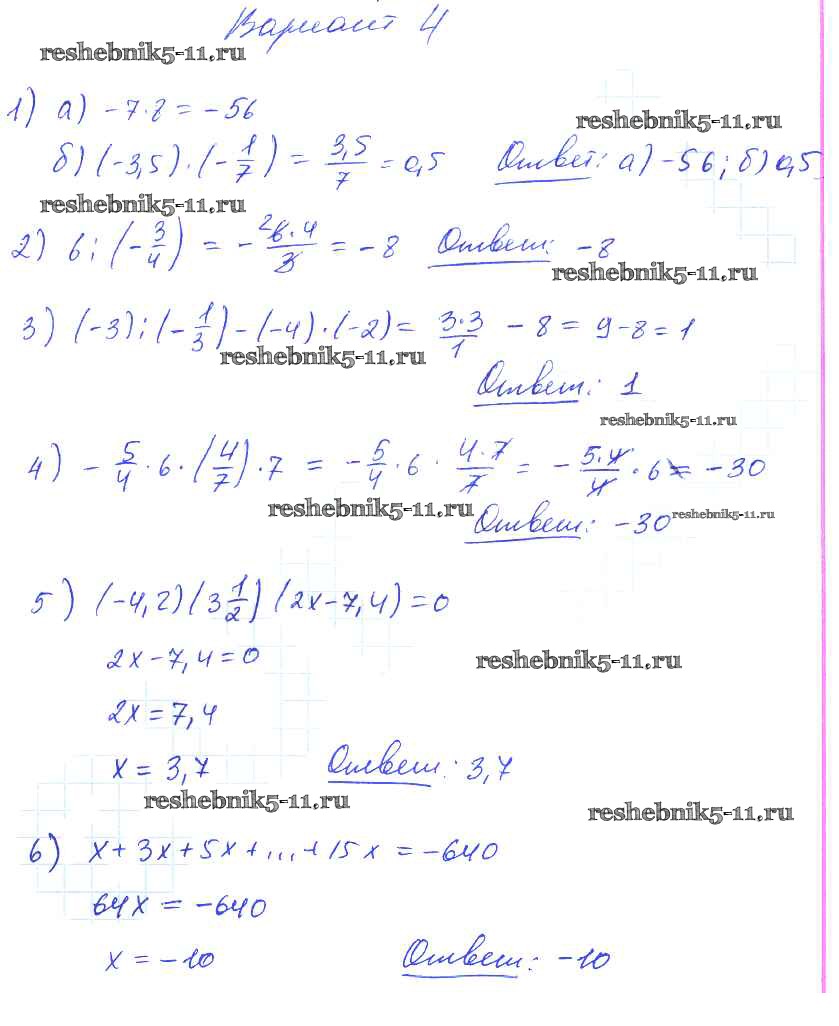 Вариант 4
reshebnik5-11.ru
1) а) -7·8 = -56
reshebnik5-11.ru
б) (-3,5)·(-1/7) = 3,5/7 = 0,5 Ответ: а) -56; б) 0,5
reshebnik5-11.ru
2) 6 : (-3/4) = -²6·4/3 = -8 Ответ: -8
reshebnik5-11.ru
3) (-3) : (-1/3) - (-4)·(-2) = 3·3/1 - 8 = 9-8 = 1
reshebnik5-11.ru
Ответ: 1
reshebnik5-11.ru
4) -5/4·6·(4/7)·7 = -5/4·6·4·7/7 = -5·4/4·6 = -30
reshebnik5-11.ru
Ответ: -30
reshebnik5-11.ru
5) (-4,2)(3 1/2)(2x-7,4)=0
2x-7,4=0
reshebnik5-11.ru
2x=7,4
x = 3,7 Ответ: 3,7
reshebnik5-11.ru
reshebnik5-11.ru
6) x+3x+5x+...+15x = -640
64x = -640
x = -10 Ответ: -10